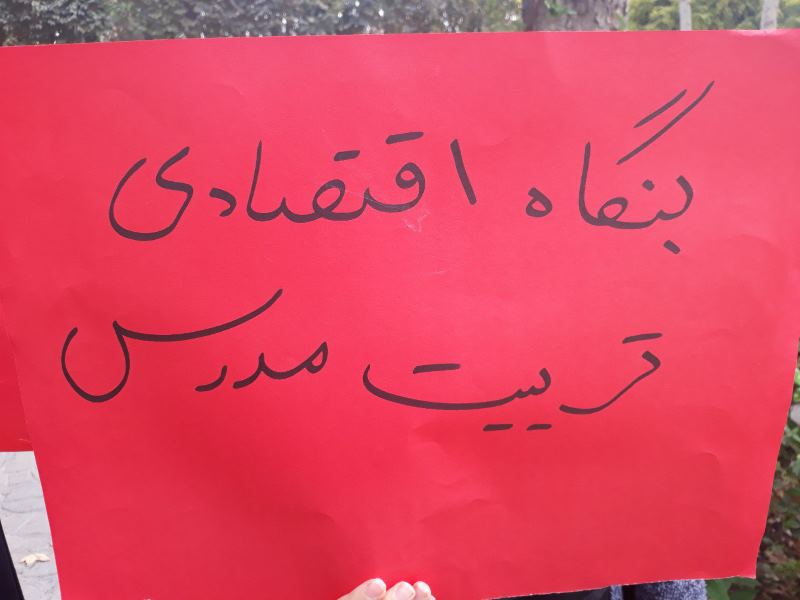 بنگاه اقتصادی
تربیت مدرس